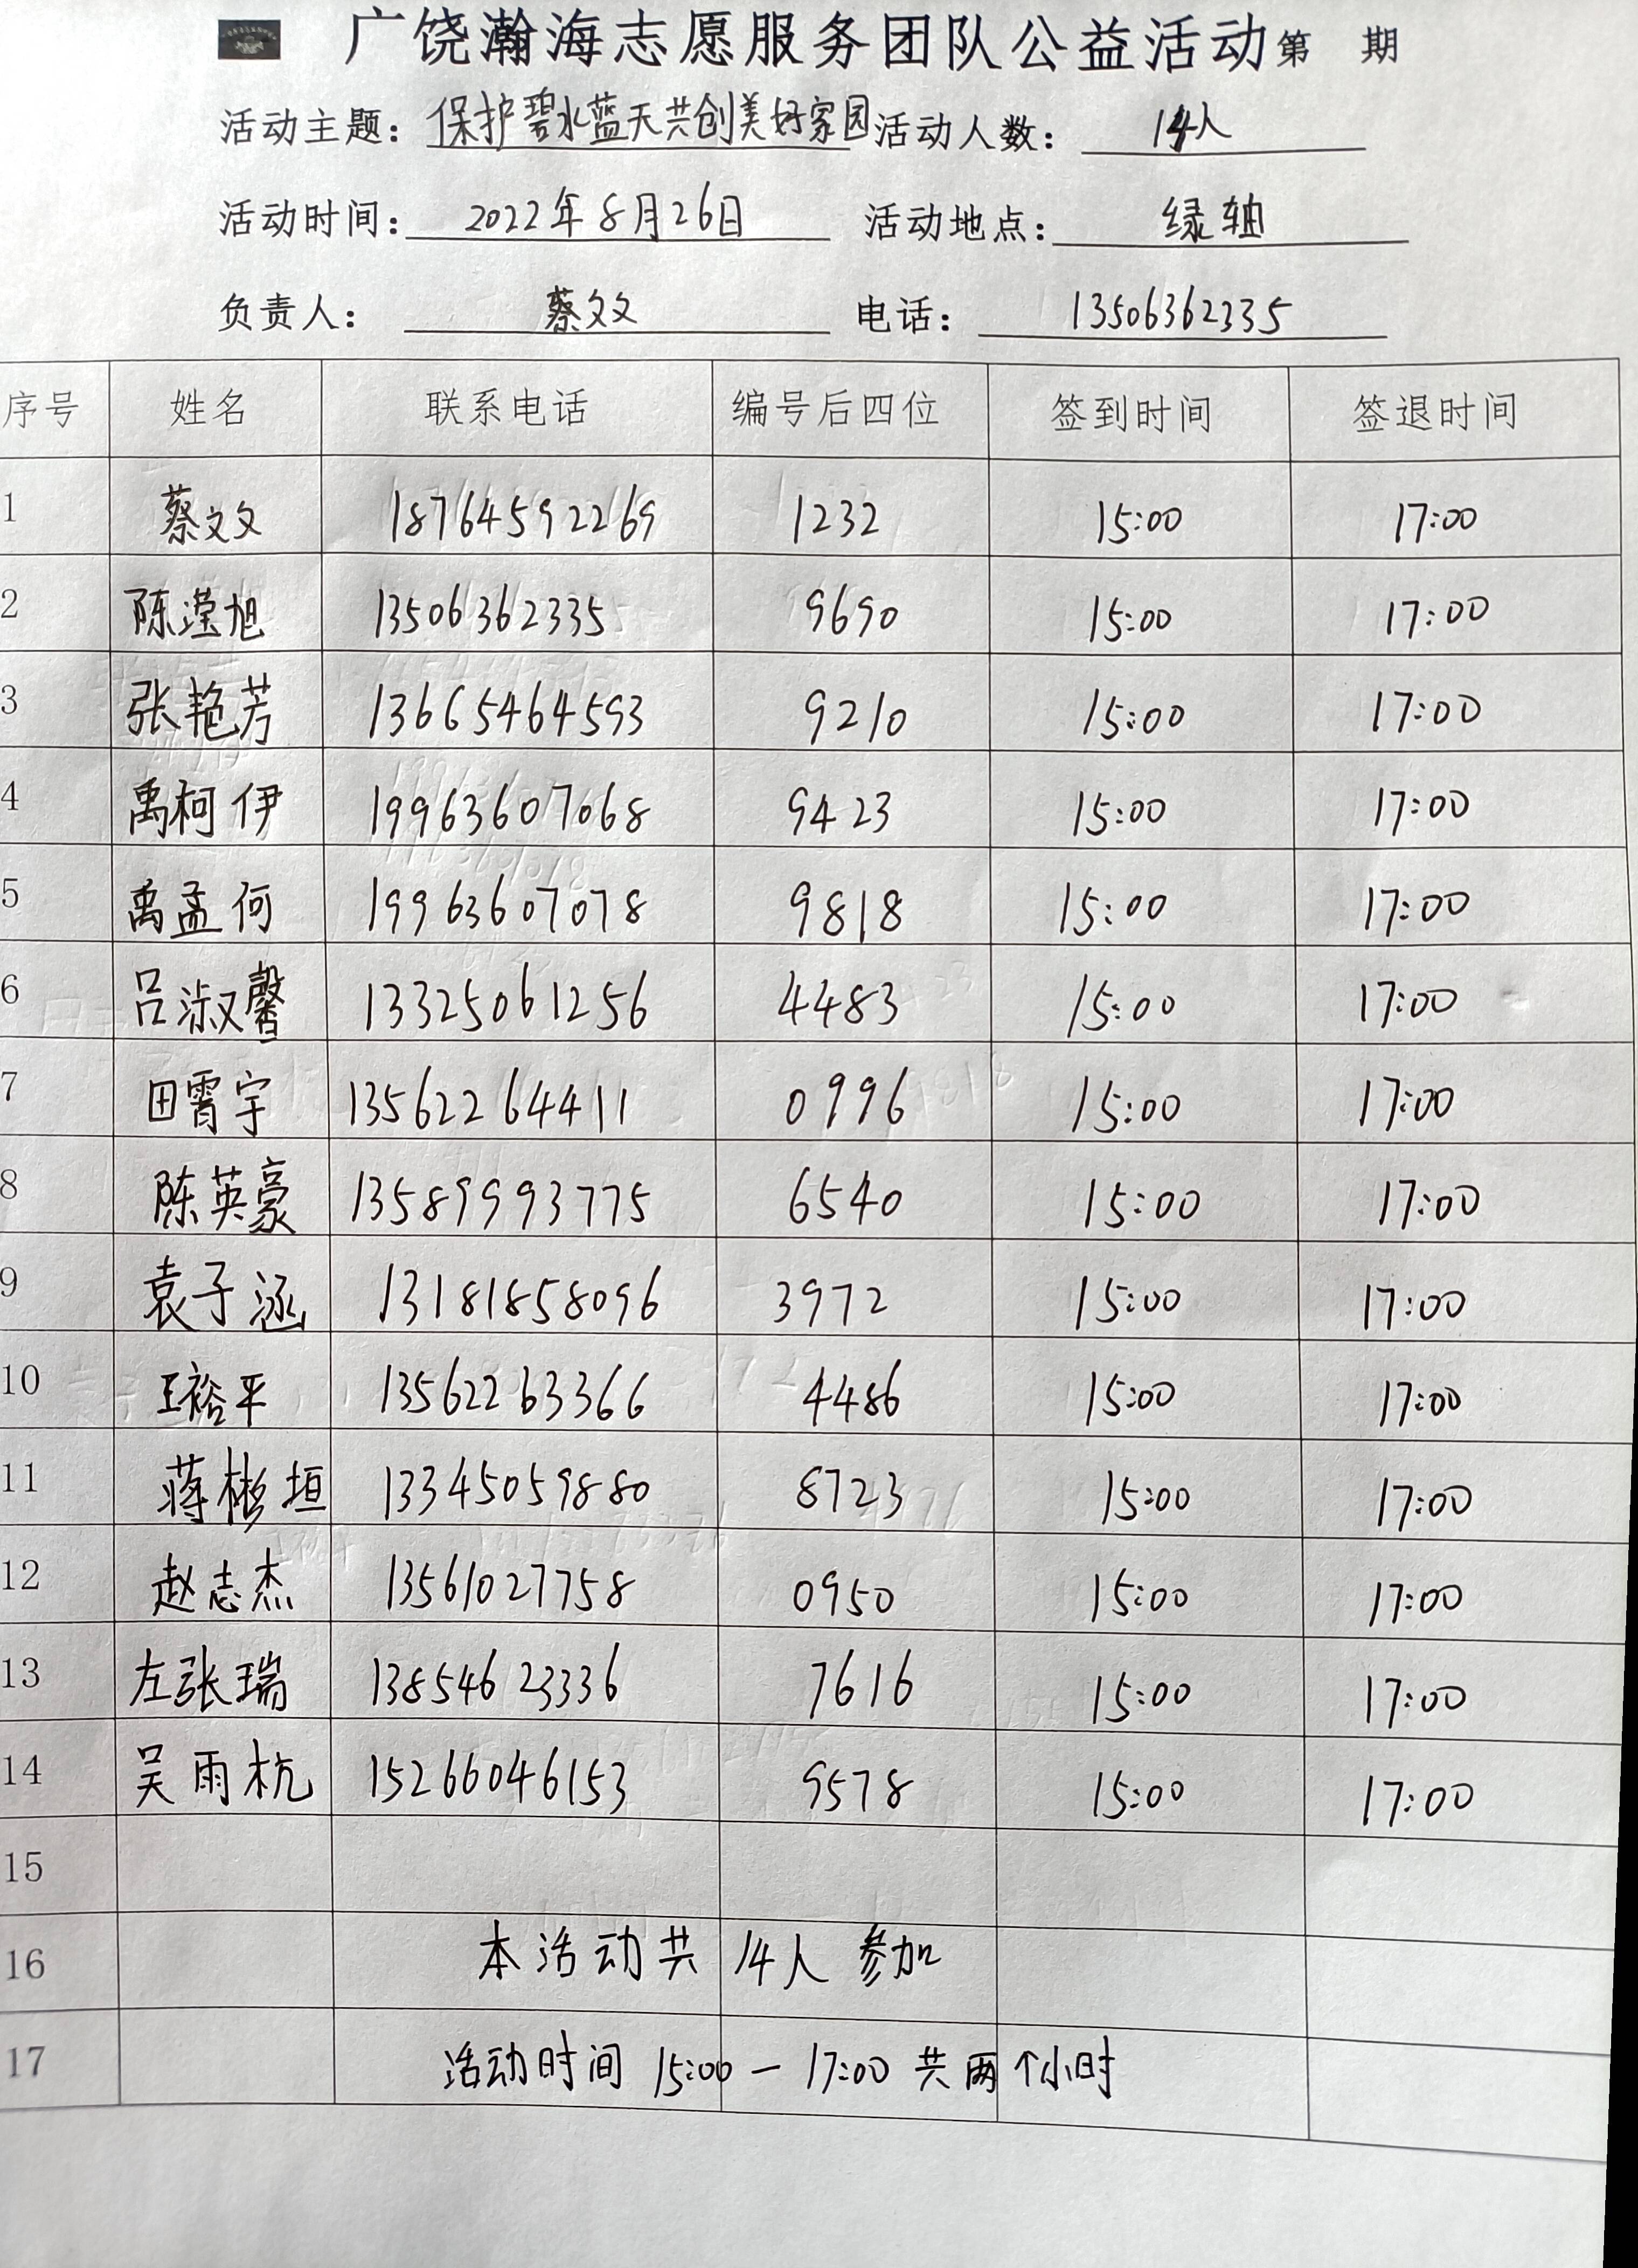 广饶瀚海志愿服务团队公益活动第 期
活动主题：保护碧水蓝天共创美好家园 活动人数：14人
活动时间：2022年8月26日 活动地点：绿轴
负责人：蔡文文 电话：13506362335
序号 姓名 联系电话 编号后四位 签到时间 签退时间
1 蔡文文 18764592269 1232 15:00 17:00
2 陈滢旭 13506362335 9690 15:00 17:00
3 张艳芳 13665464593 9210 15:00 17:00
4 禹柯伊 19963607068 9423 15:00 17:00
5 禹孟何 19963607078 9818 15:00 17:00
6 吕淑馨 13325061256 4483 15:00 17:00
7 田霄宇 13562264411 0996 15:00 17:00
8 陈英豪 13589993775 6540 15:00 17:00
9 袁子涵 13181858096 3972 15:00 17:00
10 王裕平 13562263366 4486 15:00 17:00
11 蒋彬垣 13345059880 8723 15:00 17:00
12 赵志杰 13561027758 0950 15:00 17:00
13 左张瑞 13854623336 7616 15:00 17:00
14 吴雨杭 15266046153 9578 15:00 17:00
15
16 本活动共14人参加
17 活动时间 15:00-17:00 共两个小时